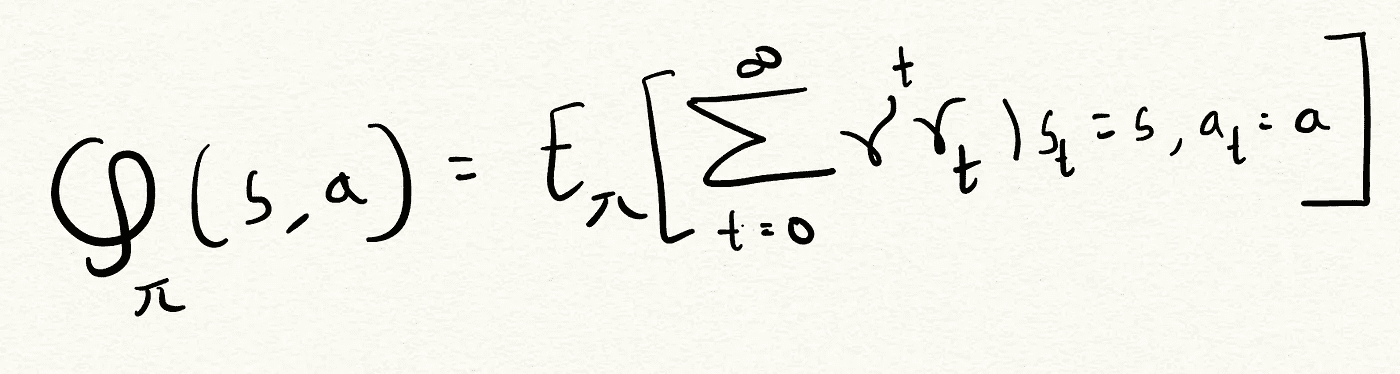 φ_π(s,a) = E_π[∑_{t=0}^{∞} γ^t r_t | s_t = s, a_t = a]